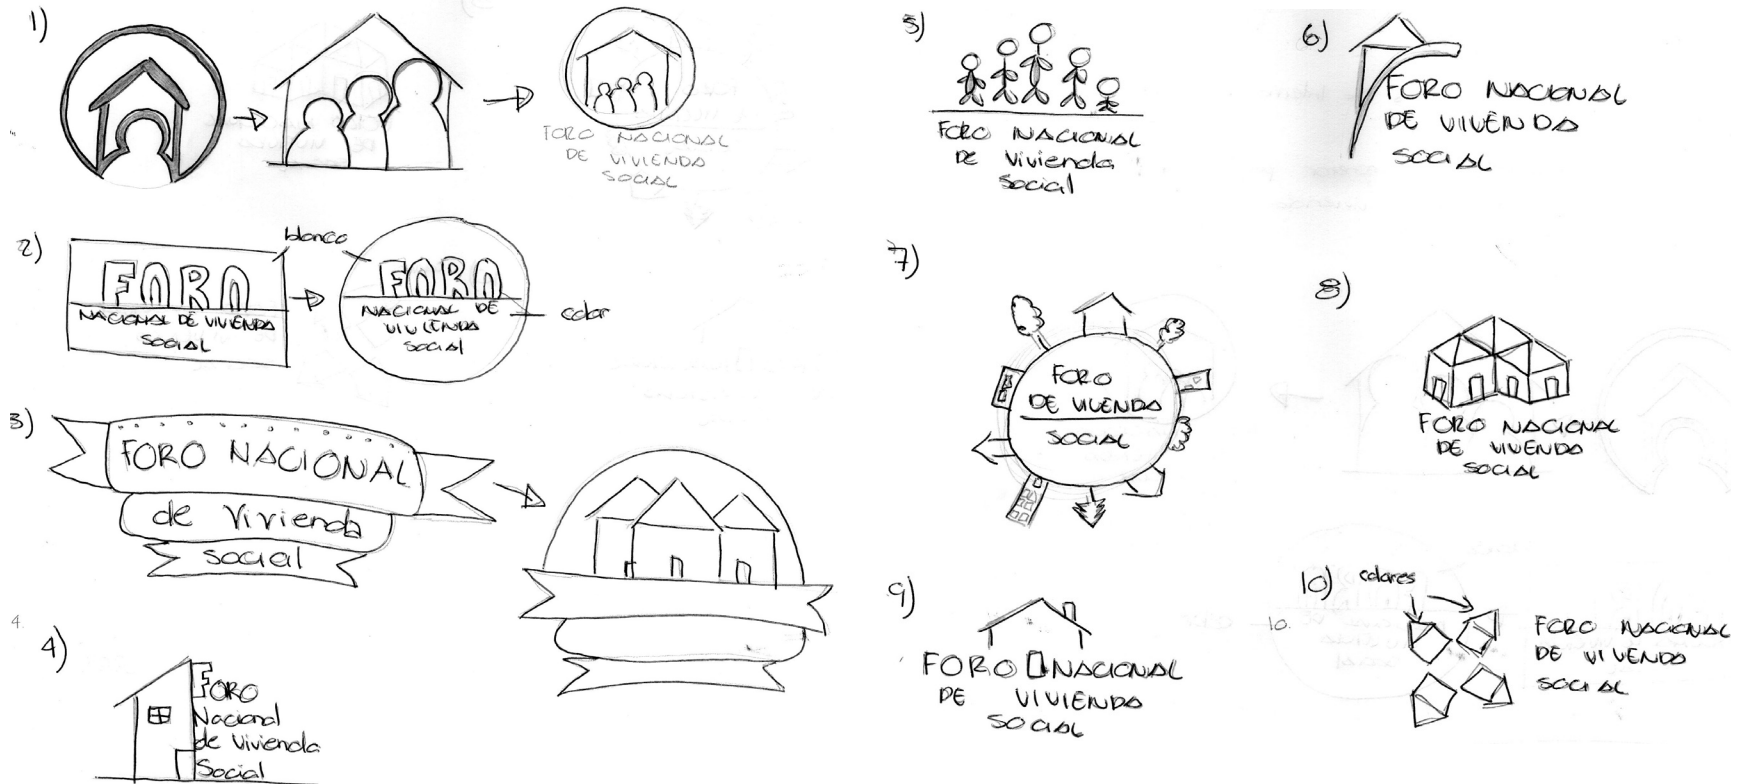 1)
FORO NACIONAL
DE VIVIENDA
SOCIAL
2)
blanco
FORO
NACIONAL DE VIVIENDA
SOCIAL
FORO
NACIONAL DE
VIVIENDA
SOCIAL
color
3)
FORO NACIONAL
de Vivienda
social
4.
4)
FORO
Nacional
de Vivienda
Social
5)
FORO NACIONAL
DE Vivienda
Social
6)
FORO NACIONAL
DE VIVIENDA
SOCIAL
7)
FORO
DE VIVENDA
SOCIAL
8)
FORO NACIONAL
DE VIVIENDA
SOCIAL
9)
FORO NACIONAL
DE VIVIENDA
SOCIAL
10)
colores
10.
FORO NACIONAL
DE VIVIENDA
SOCIAL